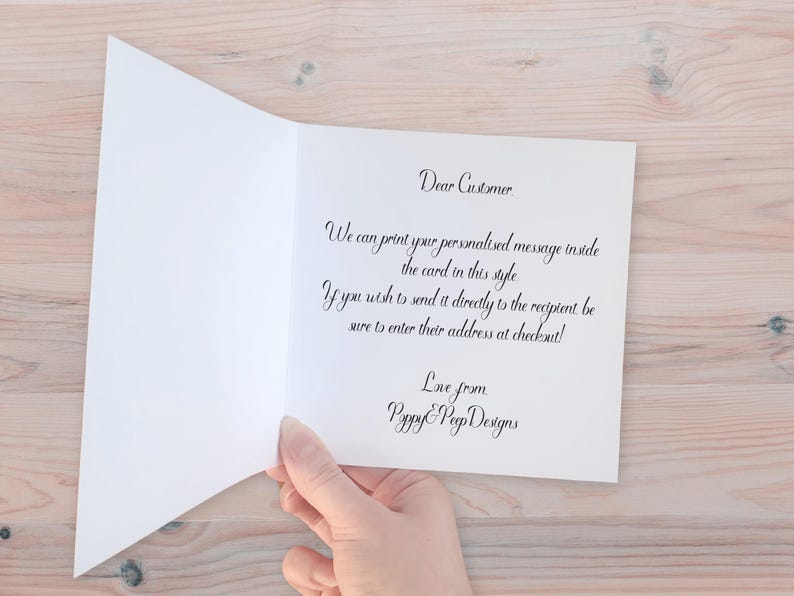 Dear Customer,
We can print your personalised message inside
the card in this style.
If you wish to send it directly to the recipient, be
sure to enter their address at checkout!
Love from,
Poppy&PeepDesigns